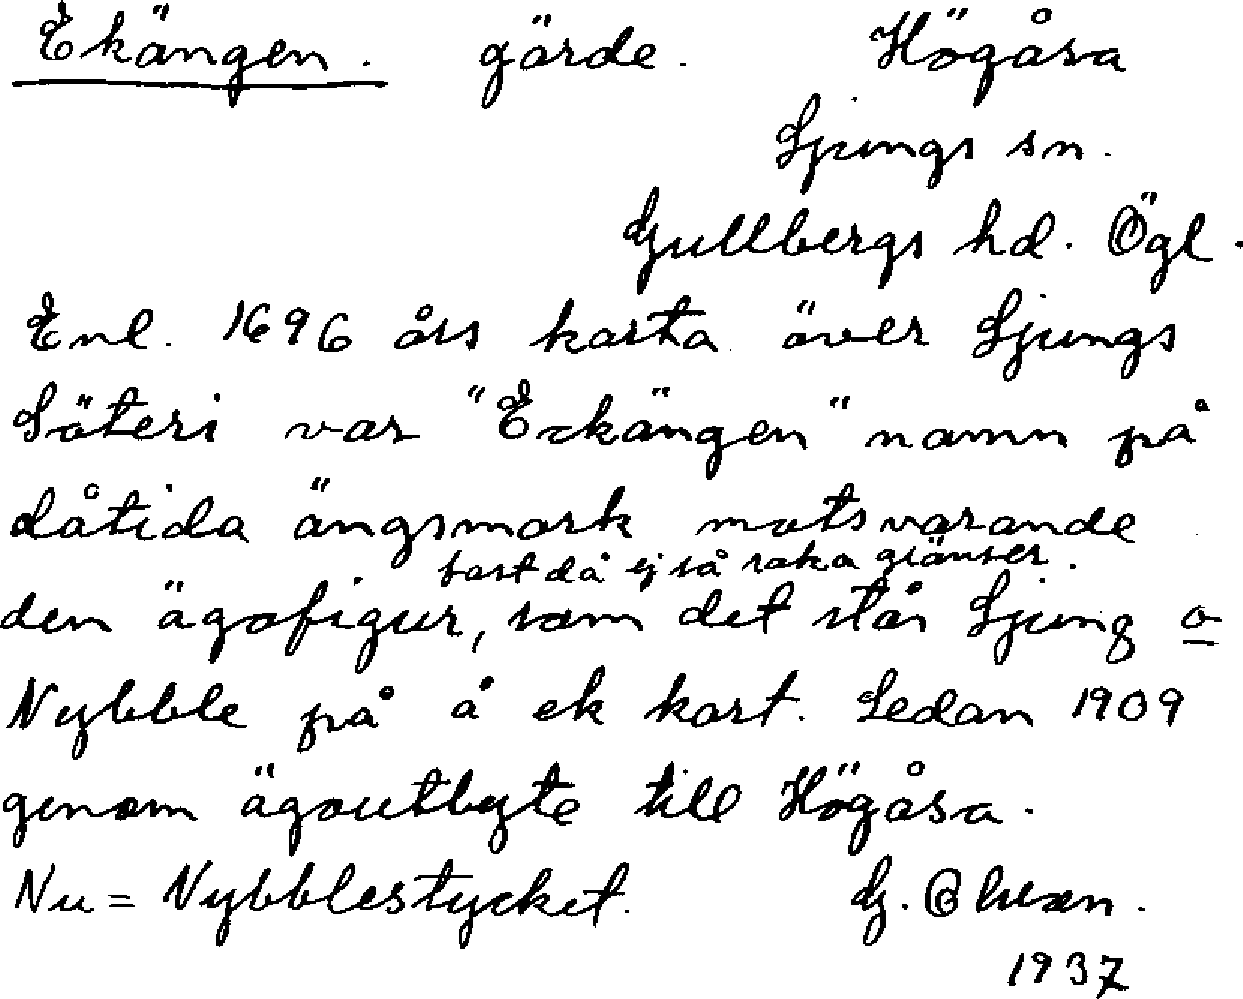 Ekängen. gärde. Högåsa
Ljungs sn.
Gullbergs hd. Ögl.
Enl. 1696 års karta över Ljungs
Säteri var "Eckängen" namn på
dåtida ängsmark motsvarande
fast då ej så raka gränser.
den ägofigur, som det står Ljung o
Nybble på å ek kart. Sedan 1909
genom ägoutbyte till Högåsa.
Nu = Nybblestycket. G.
1937